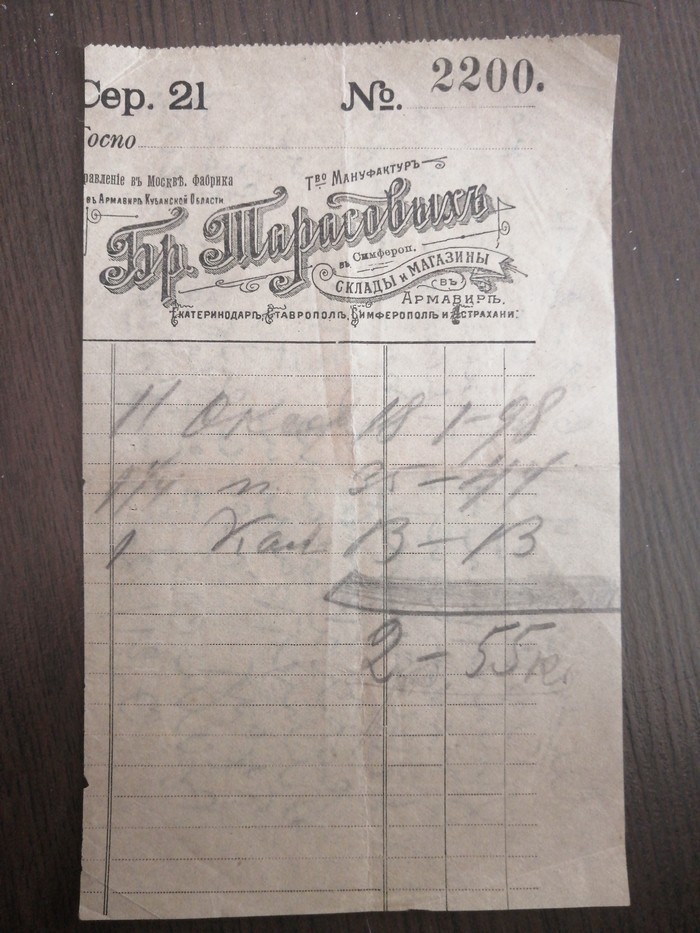 Сер. 21 №. 2200.
Госпо
равленіе въ Москвѣ, фабрика
въ Армавирѣ Кубанской Области
Тво Мануфактуръ
Бр. Тарасовыхъ
въ Симфероп.
СКЛАДЫ и МАГАЗИНЫ
въ
Армавирѣ,
Екатеринодарѣ, Ставрополѣ, Симферополѣ и Астрахани.
11 18 1-98
1 1/4 п. 35-44
1 Кол 13-13
2-55к.